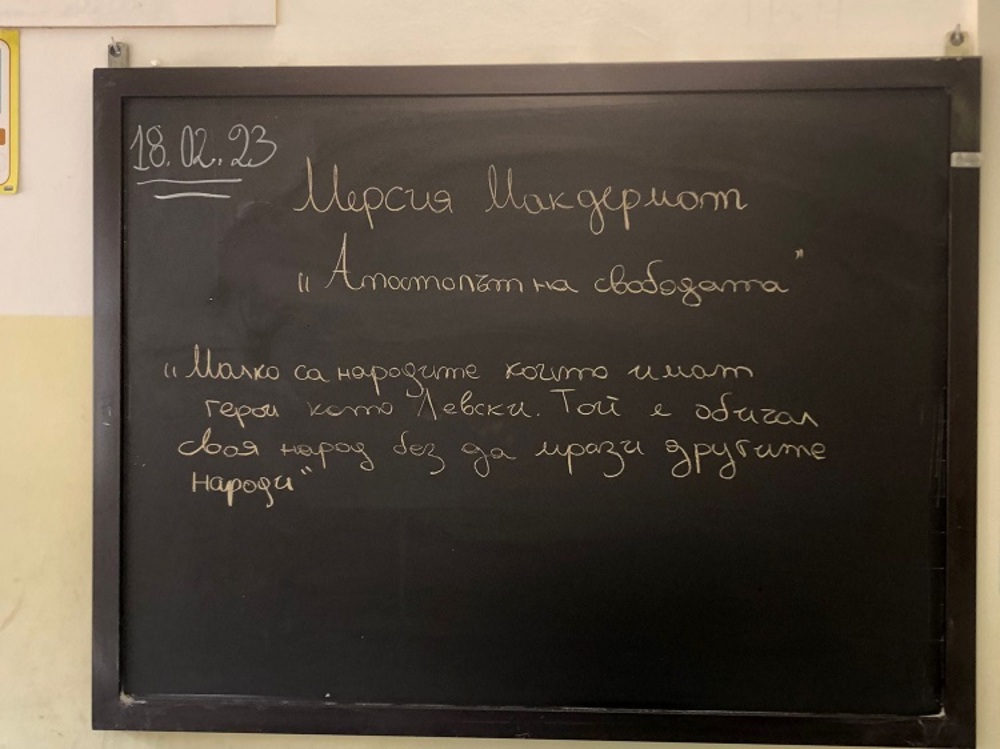 18.02.23
Мерсия Макдермот
„Апостолът на свободата"
„Малко са народите които имат
герои като Левски. Той е обичал
своя народ без да мрази другите
народи"